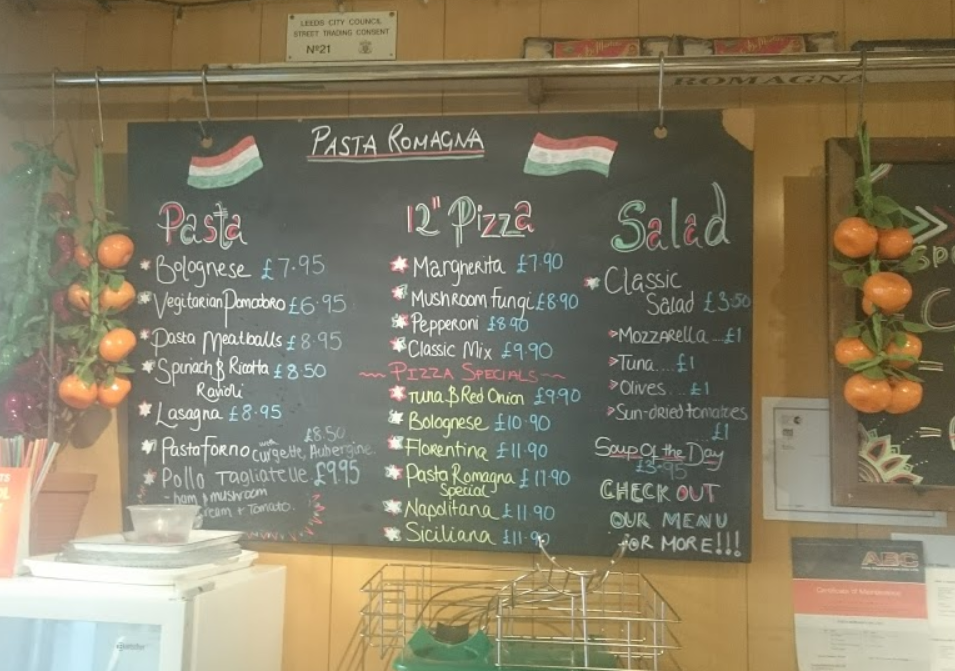 LEEDS CITY COUNCIL
STREET TRADING CONSENT
Nº21
ROMAGNA
PASTA ROMAGNA
Pasta
Bolognese £7.95
Vegitarian Pomodoro £6.95
Pasta Meatballs £8.95
Spinach & Ricotta £8.50
Ravioli
Lasagna £8.95
£8.50
Pasta Forno with Curgette, Aubergine.
Pollo Tagliatelle £9.95
- ham & mushroom
+ Tomato.
12" Pizza
Margherita £7.90
Mushroom Fungi £8.90
Pepperoni £8.90
Classic Mix £9.90
~ PIZZA SPECIALS ~
Tuna & Red Onion £9.90
Bolognese £10.90
Florentina £11.90
Pasta Romagna £11.90
Special
Napolitana £11.90
Siciliana £11.90
Salad
Classic
Salad £3.50
>Mozzarella...£1
>Tuna....£1
>Olives...£1
>Sun-dried tomatoes
£1
Soup Of the Day
£3.95
CHECK OUT
OUR MENU
FOR MORE!!!
ABC